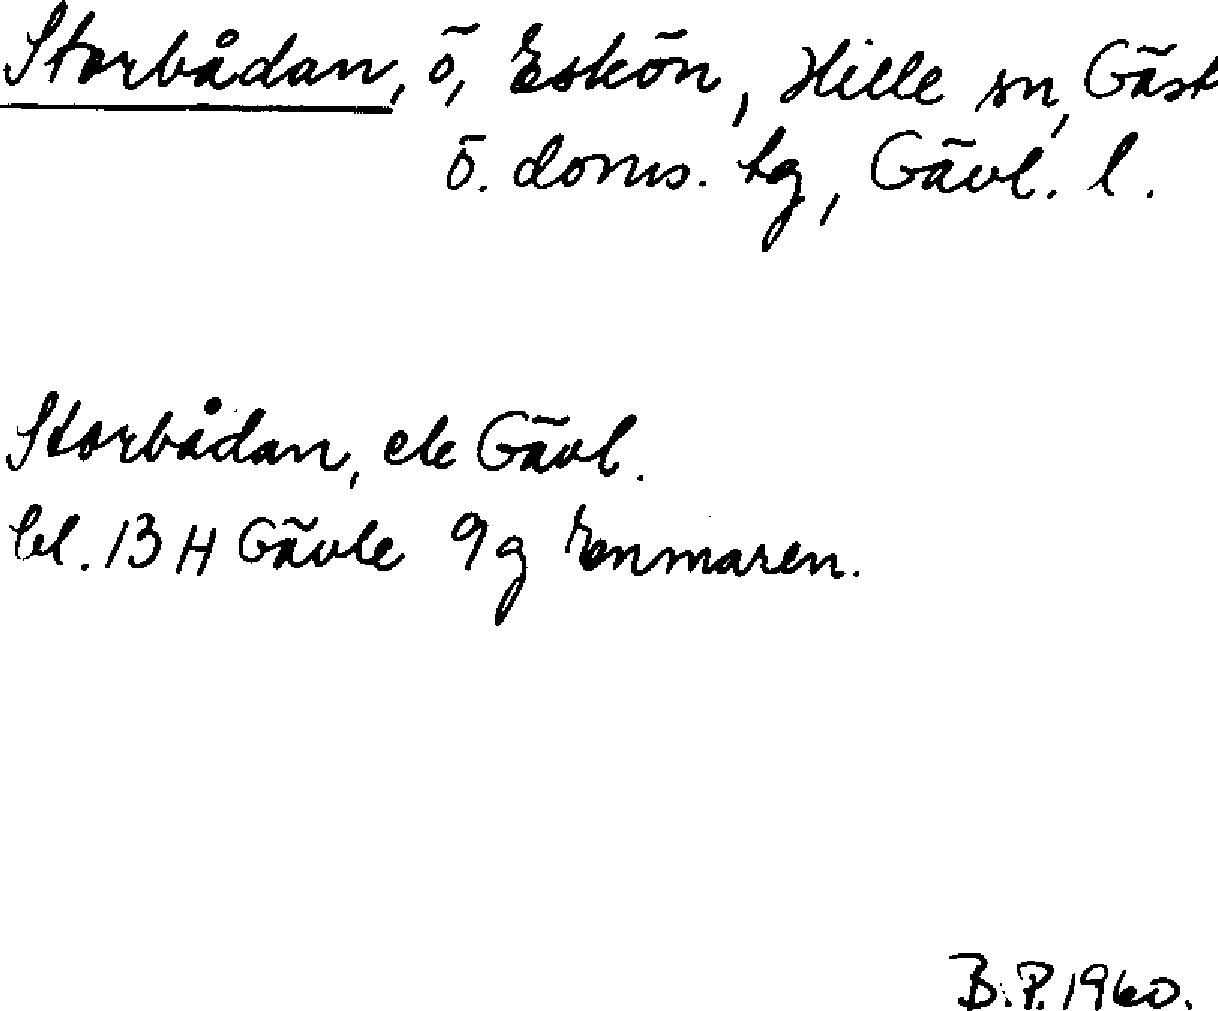 Storbådan, ö, Eskön, Hille sn, Gäst
ö. doms. tg, Gävl. l.
Storbådan, ek Gävl.
bl. 13 H Gävle 9g Enmaren.
B.P. 1960.